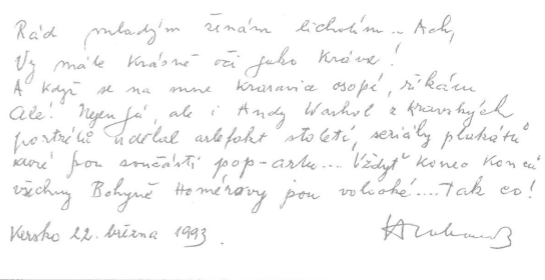 Rád mladým ženám lichotím.. Ach,
Vy máte krásné oči jako Kráva!
A když se na mne krasavice osopí, říkám
Ale! Nejen já, ale i Andy Warhol z kravských
portrétů udělal artefakt století, seriály plakátů
které jsou součástí pop-artu... Vždyť konec konců
všechny Bohyně Homérovy jsou volooké.... Tak co!
Kersko 22. března 1993.